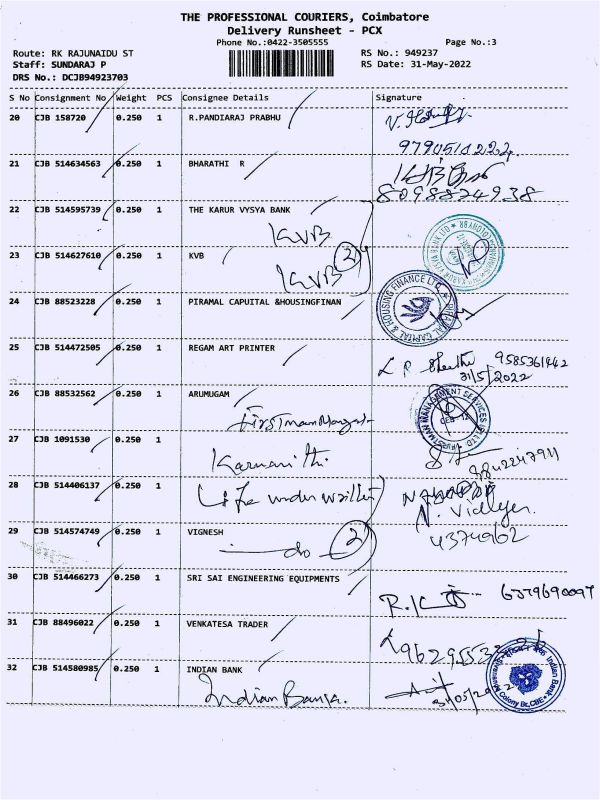 THE PROFESSIONAL COURIERS, Coimbatore
Delivery Runsheet - PCX
Phone No.:0422-3505555 Page No.:3
Route: RK RAJUNAIDU ST RS No.: 949237
Staff: SUNDARAJ P RS Date: 31-May-2022
DRS No.: DCJB94923703
S No Consignment No Weight PCS Consignee Details Signature
20 CJB 158720 0.250 1 R.PANDIARAJ PRABHU
21 CJB 514634563 0.250 1 BHARATHI R
8098874938
22 CJB 514595739 0.250 1 THE KARUR VYSYA BANK
KVB
23 CJB 514627610 0.250 1 KVB
KVB 2
24 CJB 88523228 0.250 1 PIRAMAL CAPUITAL &HOUSINGFINAN
CAPITAL & HOUSING FINANCE LTD
25 CJB 514472505 0.250 1 REGAM ART PRINTER
31/5/2022
26 CJB 88532562 0.250 1 ARUMUGAM
FIRSTMAN MANAGEMENT SERVICES (P) LTD
27 CJB 1091530 0.250 1
9842247911
28 CJB 514406137 0.250 1 Life under writter
29 CJB 514574749 0.250 1 VIGNESH
do 2
30 CJB 514466273 0.250 1 SRI SAI ENGINEERING EQUIPMENTS
31 CJB 88496022 0.250 1 VENKATESA TRADER
32 CJB 514580985 0.250 1 INDIAN BANK
Indian Bank.
Indian Bank